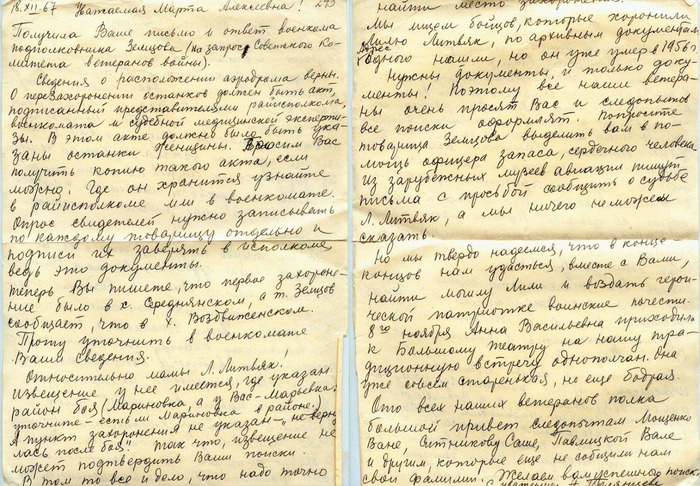 18.XII.67 Уважаемая Марта Алексеевна!
Получила Ваше письмо и ответ военкома
подполковника Земцова (на запрос Советского Ко-
митета ветеранов войны).
Сведения о расположении аэродрома верны.
О перезахоронении останков должен быть акт,
подписанный представителями райисполкома,
военкомата и судебной медицинской эксперти-
зы. В этом акте должно было быть ука-
зано останки женщины. Просим Вас
получить копию такого акта, если
можно. Где он хранится узнайте
в райисполкоме или в военкомате.
Опрос свидетелей нужно записывать
по каждому товарищу отдельно и
подписи их заверять в исполкоме
ведь это документы.
теперь Вы пишете, что первое захороне-
ние было в с. Среднянском, а т. Земцов
сообщает, что в х. Воздвиженском.
Прошу уточнить в военкомате
Ваши сведения.
Относительно мамы Л. Литвяк!
Извещение у нее имеется, где указан
район боя (Мариновка, а у Вас-Марьевка
уточните - есть ли Мариновка в районе.)
А пункт захоронения не указан - не верну
лась после боя! Так что, извещение не
может подтвердить Ваши поиски.
В том то все и дело, что надо точно
найти место захоронения.
Мы ищем бойцов, которые хоронили
Лилю Литвяк, по архивным документам
адрес
одного нашли, но он уже умер в 1956 г.
Нужны документы, и только доку-
менты! Поэтому все наши ветера-
ны очень просят Вас и следопытов
все поиски оформлять. Попросите
товарища Земцова выделить вам в по-
мощь офицера запаса, сердечного человека.
Из зарубежных музеев авиации пишут
письма с просьбой сообщить о судьбе
Л. Литвяк, а мы ничего не можем
сказать.
Но мы твердо надеемся, что в конце
концов нам удасться, вместе с Вами,
найти могилу Лили и воздать герои-
ческой патриотке воинские почести.
8го ноября Анна Васильевна приходила
к Большому театру на нашу тра-
диционную встречу однополчан. Она
уже совсем старенькая, но еще бодрая.
Ото всех наших ветеранов полка
большой привет следопытам Мощенко
Ване, Ситникову Саше, Павлицкой Вале
и другим, которые еще не сообщили нам
свои фамилии. Желаем вам успешного поиска.